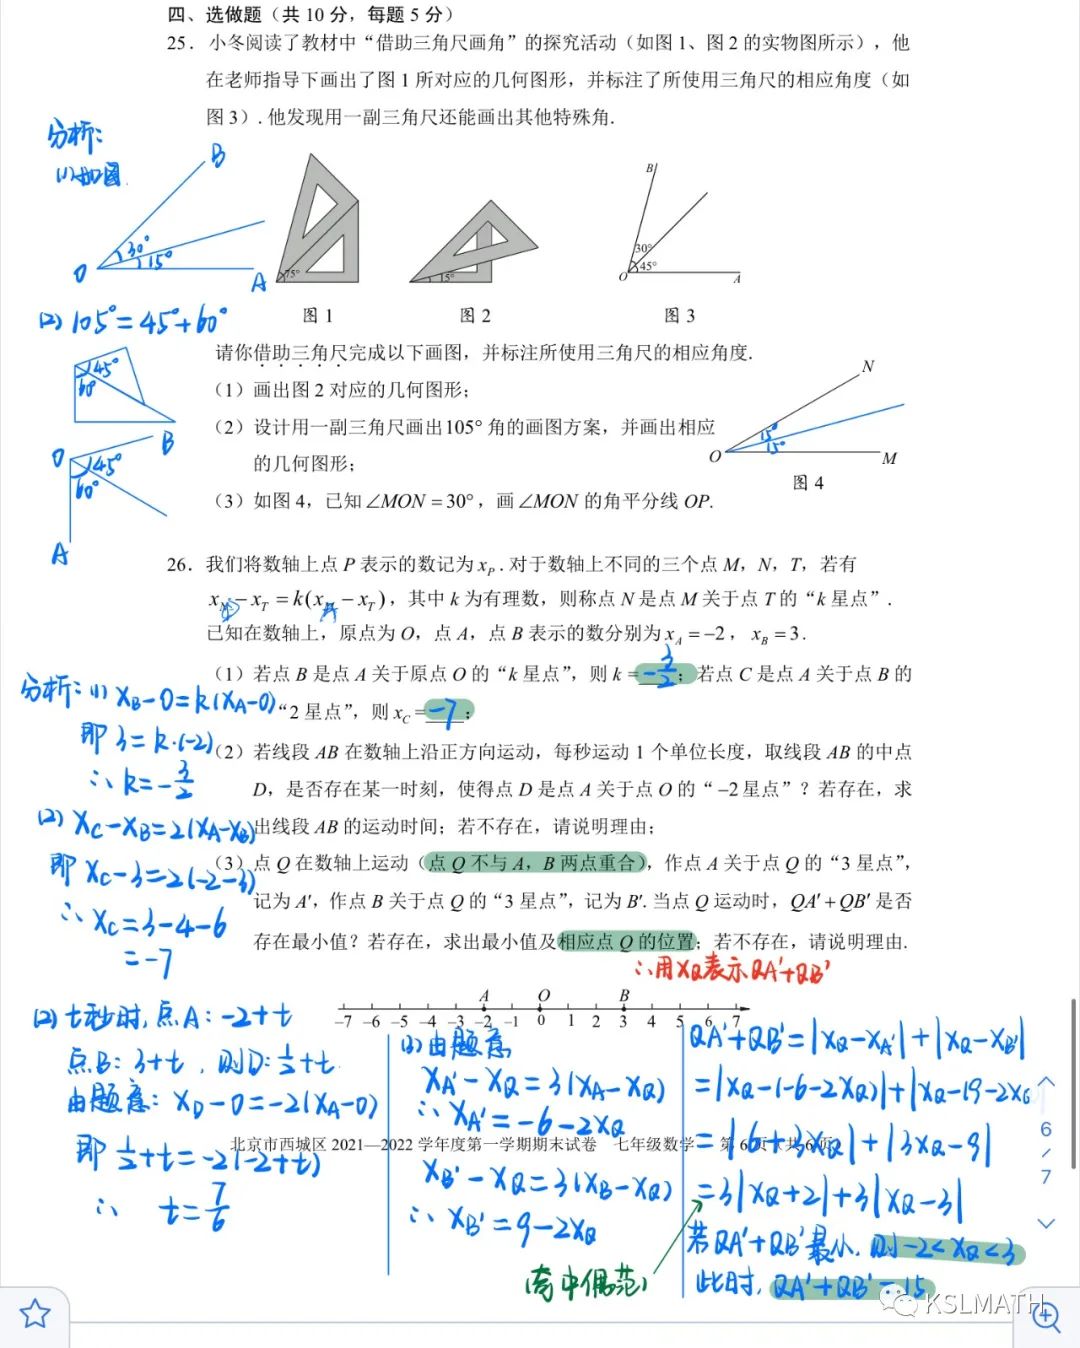 四、选做题（共 10 分，每题 5 分）
25．小冬阅读了教材中“借助三角尺画角”的探究活动（如图 1、图 2 的实物图所示），他
在老师指导下画出了图 1 所对应的几何图形，并标注了所使用三角尺的相应角度（如
图 3）．他发现用一副三角尺还能画出其他特殊角．
分析：
(1) 如图
B
30°
15°
O
A
75°
图 1
15°
图 2
B
30°
45°
O
A
图 3
(2) 105°=45°+60°
45°
60°
O
B
45°
60°
A
请你借助三角尺完成以下画图，并标注所使用三角尺的相应角度．
（1）画出图 2 对应的几何图形；
（2）设计用一副三角尺画出105° 角的画图方案，并画出相应
的几何图形；
（3）如图 4，已知∠MON = 30°，画∠MON 的角平分线 OP．
N
15°
15°
O
M
图 4
26．我们将数轴上点 P 表示的数记为 x_P．对于数轴上不同的三个点 M，N，T，若有
x_N − x_T = k(x_M − x_T)，其中 k 为有理数，则称点 N 是点 M 关于点 T 的“k 星点”．
已知在数轴上，原点为 O，点 A，点 B 表示的数分别为 x_A = −2，x_B = 3．
（1）若点 B 是点 A 关于原点 O 的“k 星点”，则 k = −3/2；若点 C 是点 A 关于点 B 的
“2 星点”，则 x_C = −7；
（2）若线段 AB 在数轴上沿正方向运动，每秒运动 1 个单位长度，取线段 AB 的中点
D，是否存在某一时刻，使得点 D 是点 A 关于点 O 的“ −2 星点”？若存在，求
出线段 AB 的运动时间；若不存在，请说明理由；
（3）点 Q 在数轴上运动（点 Q 不与 A，B 两点重合），作点 A 关于点 Q 的“3 星点”，
记为 A′，作点 B 关于点 Q 的“3 星点”，记为 B′．当点 Q 运动时，QA′+QB′ 是否
存在最小值？若存在，求出最小值及相应点 Q 的位置；若不存在，请说明理由．
∴用 x_Q 表示 QA′+QB′
分析：(1) x_B−0=k(x_A−0)
即 3=k·(−2)
∴ k=−3/2
(2) x_C−x_B=2(x_A−x_B)
即 x_C−3=2(−2−3)
∴ x_C=3−4−6
=−7
A O B
−7 −6 −5 −4 −3 −2 −1 0 1 2 3 4 5 6 7
(2) t秒时，点A：−2+t
点B：3+t，则D：1/2+t
由题意：x_D−0=−2(x_A−0)
即 1/2+t=−2(−2+t)
∴ t=7/6
(3) 由题意
x_A′−x_Q=3(x_A−x_Q)
∴ x_A′=−6−2x_Q
x_B′−x_Q=3(x_B−x_Q)
∴ x_B′=9−2x_Q
QA′+QB′=|x_Q−x_A′|+|x_Q−x_B′|
=|x_Q−(−6−2x_Q)|+|x_Q−(9−2x_Q
=|6+3x_Q|+|3x_Q−9|
=3|x_Q+2|+3|x_Q−3|
若QA′+QB′最小，则−2<x_Q<3
此时，QA′+QB′=15
北京市西城区 2021—2022 学年度第一学期期末试卷 七年级数学 第 6 页（共 6 页）
6
/
7
KSLMATH